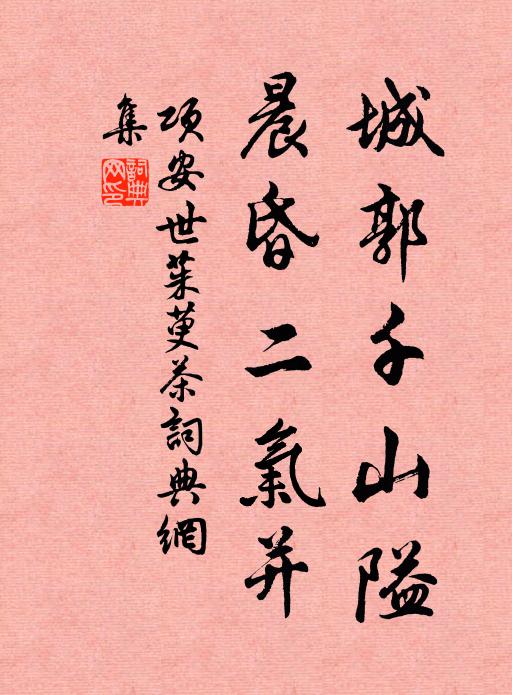 城郭千山隘
晨昏二氣并
項安世茱萸茶詞典網
集
詞典網印